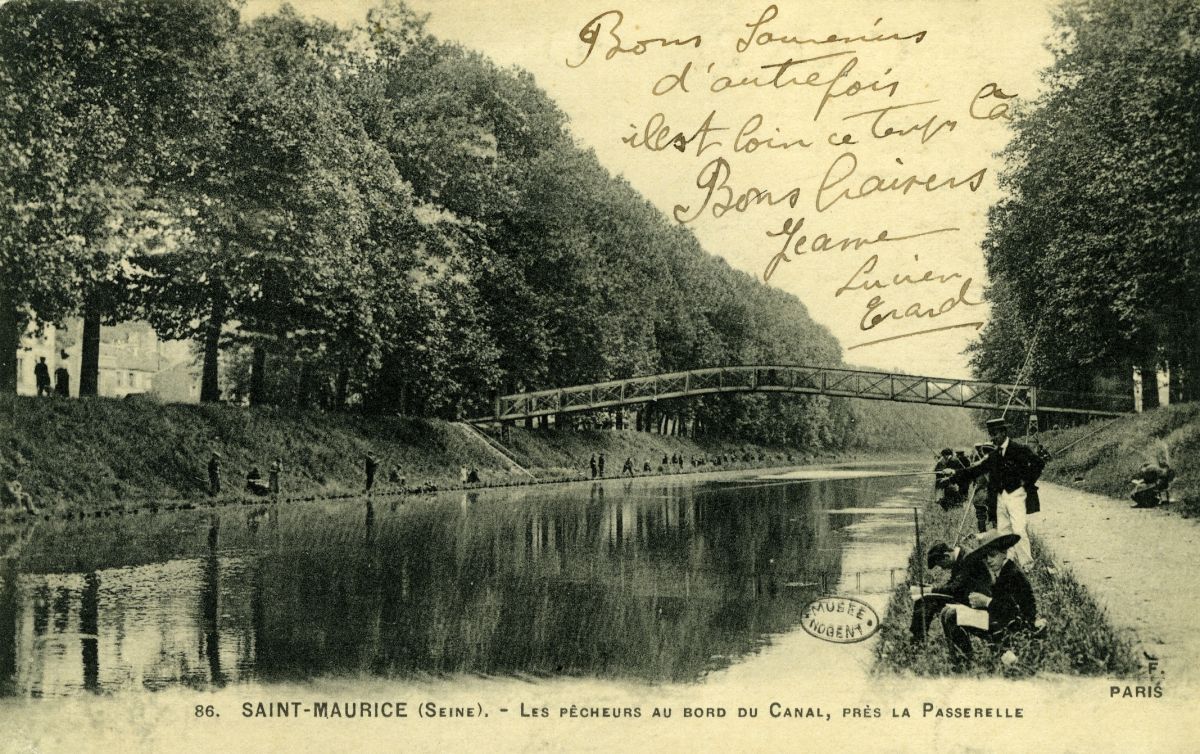 Bons Souvenirs
d'autrefois
il est loin ce temps là
Bons baisers
Jeanne
Lucien
Erard
MUSÉE
NOGENT
E.F.
PARIS
86. SAINT-MAURICE (SEINE). - LES PÊCHEURS AU BORD DU CANAL, PRÈS LA PASSERELLE